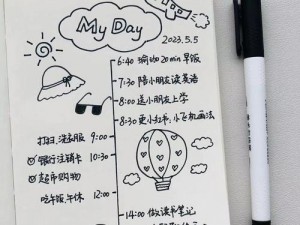 My Day
2023.5.5
6:40 瑜伽20min 早饭
7:30 陪小朋友读英语
8:00 送小朋友上学
8:30 更小红书:小飞机画法
打扫、洗衣服 9:00
银行注销卡 10:30
超市购物
吃午饭,午休 12:00
14:00 做读书笔记